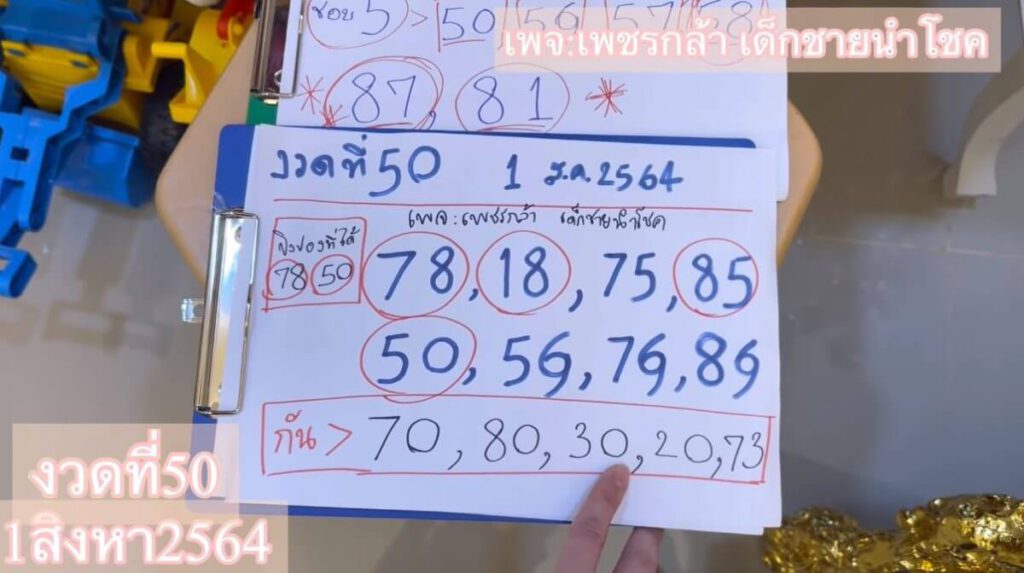 ชอบ 5 > 50 56 57 58
เพจ:เพชรกล้า เด็กชายนำโชค
* 87, 81 *
งวดที่ 50 1 ส.ค. 2564
เพจ : เพชรกล้า เด็กชายนำโชค
ปิงปองที่ได้
78 50
78, 18, 75, 85
50, 56, 76, 86
กัน > 70, 80, 30, 20, 73
งวดที่50
1สิงหา2564